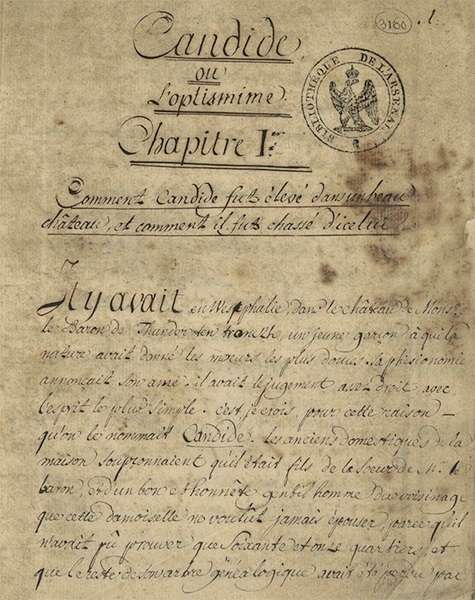 3160 1.
Candide,
ou
L'optismime.
Chapitre Ier.
BIBLIOTHÈQUE DE L'ARSENAL
Comment Candide fut élevé dans un beau
château, et comment il fut chassé d'icelui
Il y avait en Westphalie, dans le château de Monsr.
le Baron de Thunder-ten-tronckh, un jeune garçon à qui la
nature avait donné les mœurs les plus douces. sa phisionomie
annonçait son ame. il avait le jugement assez droit avec
l'esprit le plus simple. c'est, je crois, pour cette raison
qu'on le nommait Candide. les anciens domestiques de la
maison soupçonnaient qu'il était fils de la soeur de Mr. le
baron, et d'un bon et honnête gentilhomme du voisinage
que cette damoiselle ne voulut jamais épouser, parce qu'il
n'avait pû prouver que soixante et onze quartiers, et
que le reste de son arbre généalogique avait été perdu par